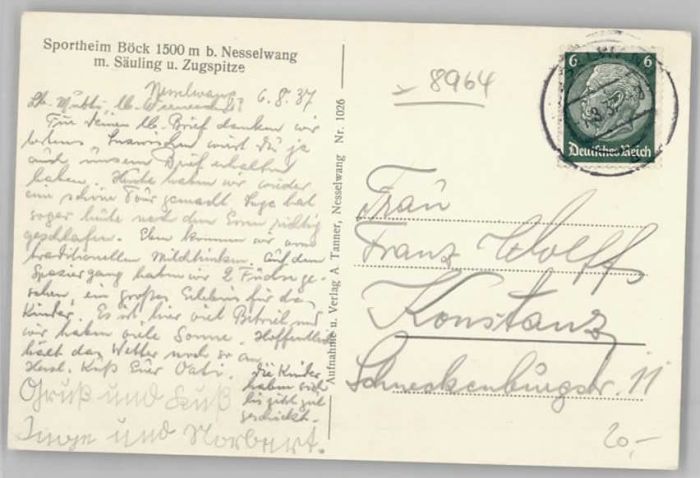 Sportheim Böck 1500 m b. Nesselwang
m. Säuling u. Zugspitze
Nesselwang 6.8.37
Lb. Mutti, lb.
Für Deinen lb. Brief danken wir
bestens. Inzwischen wirst Du ja
auch unseren Brief erhalten
haben. Heute haben wir wieder
eine schöne Tour gemacht. Inge hat
sogar heute nach dem Essen richtig
geschlafen. Eben kommen wir vom
traditionellen Milchtrinken. Auf dem
Spaziergang haben wir 2 Füchse ge-
sehen, ein großes Erlebnis für die
Kinder. Es ist hier viel Betrieb und
wir haben viele Sonne. Hoffentlich
hält das Wetter noch so an.
Herzl. Kuß Euer Vati.
Die Kinder
haben sich
bis jetzt gut
geschickt.
Gruß und Kuß
Inge und Norbert.
Aufnahme u. Verlag A Tanner, Nesselwang Nr. 1026
8964
6 6
Deutsches Reich
Frau
Franz Wolff
Konstanz
Schneckenburgstr. 11
20,-